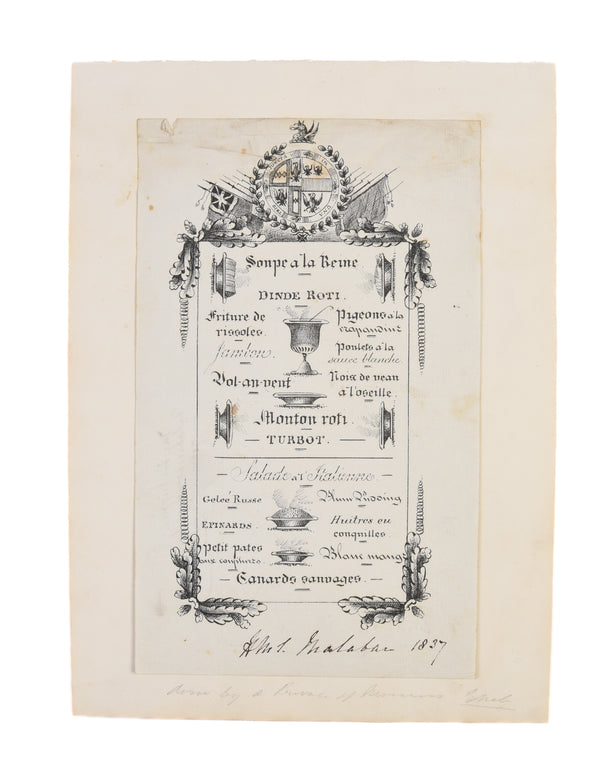 Soupe a la Reine
DINDE ROTI.
Friture de rissoles.
Pigeons à la crapaudine
Jambon.
Poulets à la sauce blanche.
Vol-au-vent
Noix de veau à l'oseille.
Mouton roti.
TURBOT.
Salade a l'Italienne
Gelée Russe
Plum Pudding
EPINARDS.
Huitres en conquilles.
Petit pates aux confitures
Blanc mange
Canards sauvages.
H.M.S. Malabar 1837
done by a Private of Marines